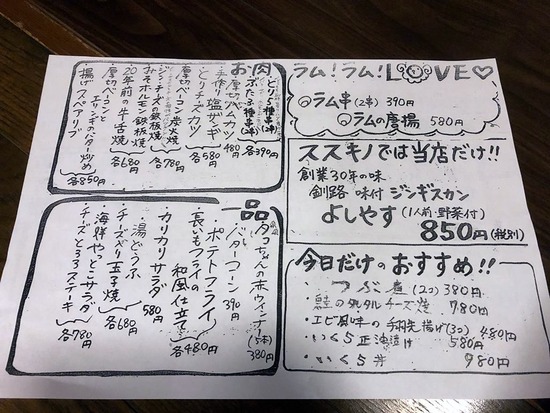 お肉
とり5種串(5本)
ぶた3種串(3本)
各390円
厚切ハムカツ 480円
手作り塩ザンギ
とりチーズカツ
各580円
厚切ベーコン炭火焼
ジンギスカンチーズの鉄板焼
みそホルモン鉄板焼
各780円
20年前の牛舌焼
厚切ベーコンと
エリンギのバター炒め
各680円
揚げスペアリブ
各850円
一品
タコちゃんの赤ウィンナー(5本) 380円
バターコーン 390円
ポテトフライ
長いもフライの
和風仕立て
各480円
カリカリサラダ 580円
湯どうふ
チーズべり玉子焼
各680円
海鮮やっとこサラダ
チーズとろろステーキ
各780円
ラム!ラム!LOVE♡
ラム串(2本) 390円
ラムの唐揚 580円
ススキノでは当店だけ!!
創業30年の味
釧路 味付ジンギスカン
よしやす(1人前・野菜付)
850円(税別)
今日だけのおすすめ!!
・つぶ煮(2コ) 380円
・鮭のタルタルチーズ焼 780円
・エビ風味の手羽先揚げ(3コ) 480円
・いくら正油漬け 580円
・いくら丼 980円